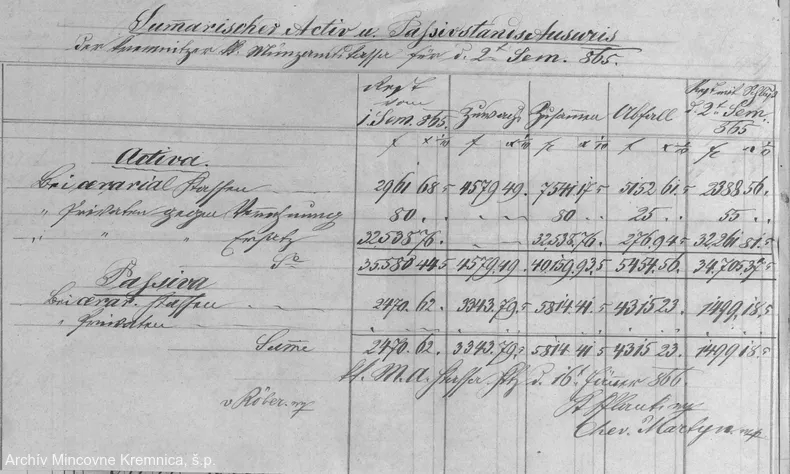 Sumarischer Activ u. Passivstands Ausweis
der Kremnitzer k. Münzamts Kassa für d. 2t Sem. 865.
Rest vom 1 Sem. 865. Zuwachs Zusammen Abfall Rest mit Schluß d. 2t Sem. 865
f x 1/10 f x 1/10 f x 1/10 f x 1/10 f x 1/10
Activa.
Bei aerarial Kassen 2961 68.5 4579 49. 7541 17.5 5152 61.5 2388 56.
" Privaten gegen Verrechnung 80 . . 80 . . 25 . . 55 . .
" " " Ersatz 32538 76. 32538 76. 276 94.5 32261 81.5
Sa 35580 44.5 4579 49. 40159 93.5 5454 56. 34705 37.5
Passiva
Bei aerar. Kassen 2470. 62. 3343. 79.5 5814. 41.5 4315 23. 1499. 18.5
" Privaten
Summe 2470. 62. 3343. 79.5 5814 41.5 4315 23. 1499 18.5
kk. M. A. Kassa d. 16. Jänner 866.
v Röber. mp
Chev. Martyn mp
Archív Mincovne Kremnica, š.p.